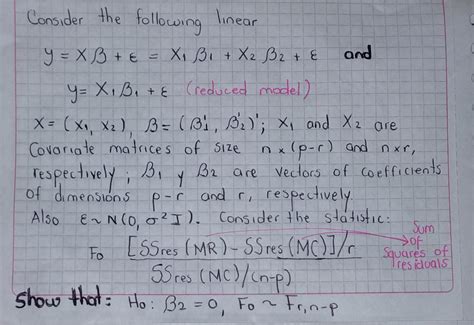 Consider the following linear
y = Xβ + ε = X₁ β₁ + X₂ β₂ + ε and
y = X₁ β₁ + ε (reduced model)
X = (X₁, X₂), β = (β₁', β₂')'; X₁ and X₂ are
Covariate matrices of size n × (p-r) and n×r,
respectively; β₁ y β₂ are vectors of coefficients
of dimensions p-r and r, respectively.
Also ε ~ N(0, σ²I). Consider the statistic:
Sum of Squares of residuals
F₀ [SSres (MR) - SSres (MC)]/r
SSres (MC)/(n-p)
Show that: H₀: β₂ = 0, F₀ ~ Fr,n-p